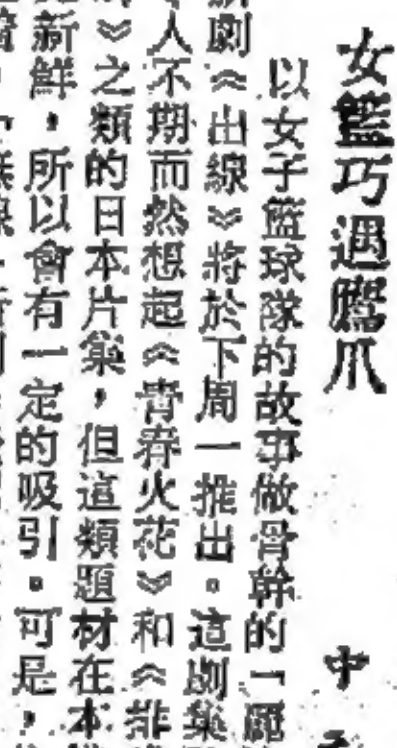 女籃巧遇鷹爪
中
以女子籃球隊的故事做骨幹的「麗
劇《出線》將於下周一推出。這劇集
人不期而然想起《青春火花》和《排
》之類的日本片集,但這類題材在本
新鮮,所以會有一定的吸引。可是,